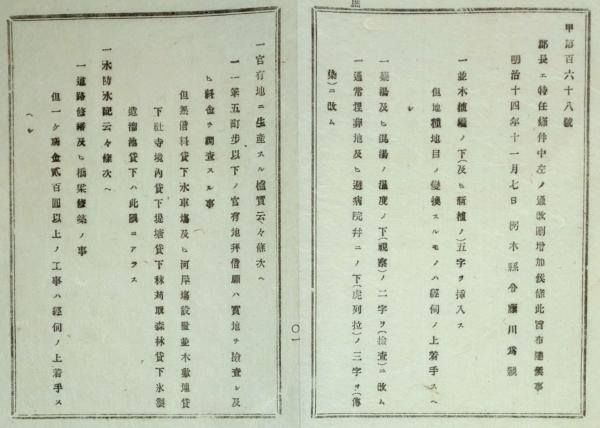 甲第百六十八號
郡長ヱ特任條件中左ノ通改刪增加候條此旨布達候事
明治十四年十一月七日 栃木縣令藤川爲親
一並木植繼ノ下(及ヒ新植ノ)五字ヲ挿入ス
但地種地目ノ變換スルモノハ經伺ノ上着手スヘシ
一藥湯及ヒ混湯ノ溫度ノ下(視察)ノ二字ヲ(檢查)ニ改ム
一通常埋葬地及ヒ避病院幷ニノ下(虎列拉)ノ三字ヲ(傳
染)ニ改ム
一官有地ニ生産スル樝實云々條次ヘ
一一筆五町步以下ノ官有地拜借願ハ實地ヲ檢查シ及
ヒ料金ヲ調查スル事
但無借料貸下水車場及ヒ河岸場設置並木敷地貸
下社寺境內貸下堤塘貸下秣苅取森林貸下氷製
造溜池貸下ハ此限ニアラス
一水防水配云々條次ヘ
一道路修繕及ヒ橋梁修築ノ事
但一ケ所金貳百圓以上ノ工事ハ經伺ノ上着手ス
ヘシ
〇一